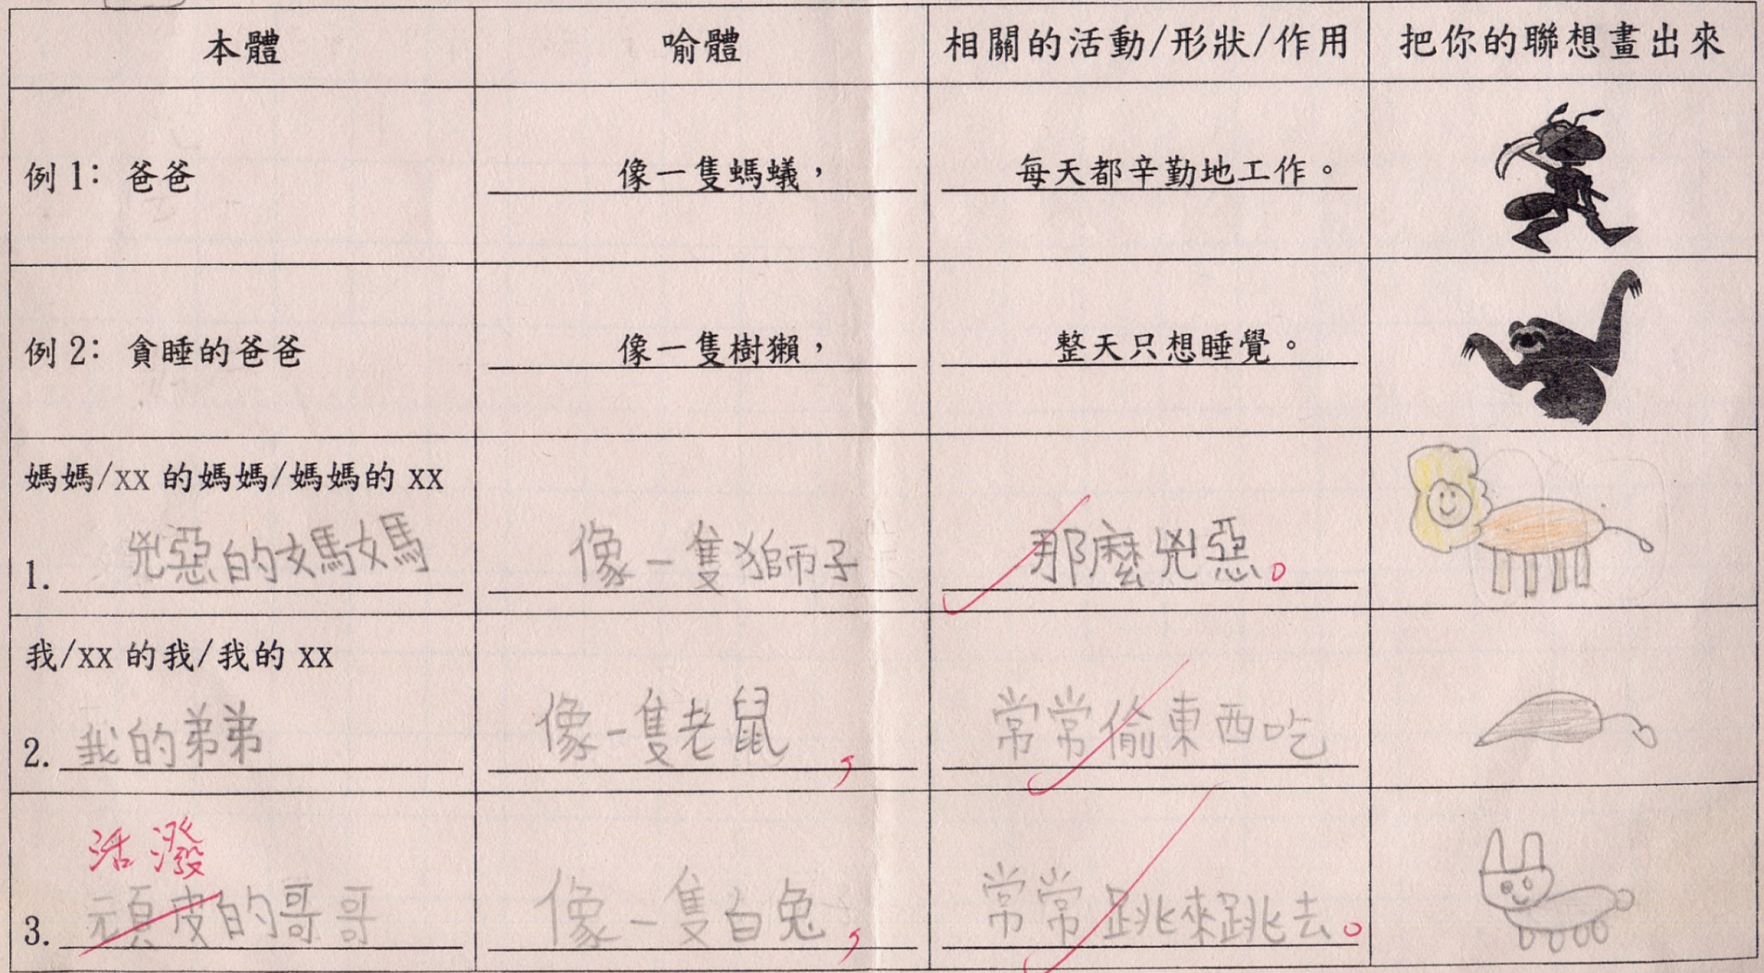 本體 喻體 相關的活動/形狀/作用 把你的聯想畫出來
例1：爸爸 像一隻螞蟻， 每天都辛勤地工作。
例2：貪睡的爸爸 像一隻樹獺， 整天只想睡覺。
媽媽/xx的媽媽/媽媽的xx
1. 兇惡的媽媽 像一隻獅子 那麼兇惡。
我/xx的我/我的xx
2. 我的弟弟 像一隻老鼠， 常常偷東西吃
活潑
3. 頑皮的哥哥 像一隻白兔， 常常跳來跳去。